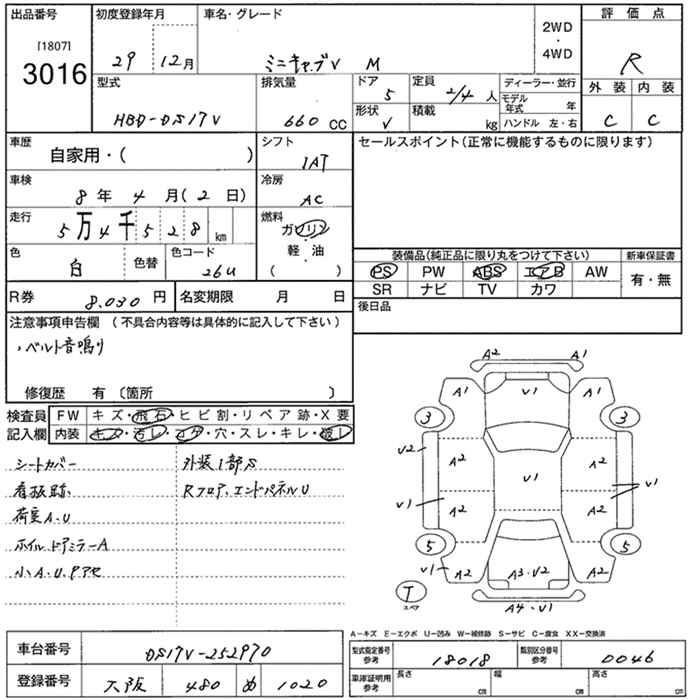 出品番号
[1807]
3016
初度登録年月
29 12月
車名・グレード
ミニキャブV M
2WD
・
4WD
評価点
R
外装 内装
C C
型式
HBD-DS17V
排気量
660 CC
ドア
5
形状
V
定員
2/4 人
積載
kg
ディーラー・並行
モデル年式 年
ハンドル 左・右
車歴
自家用・( )
シフト
1AT
セールスポイント(正常に機能するものに限ります)
車検
8年 4月(2日)
冷房
AC
走行
5万4千528km
燃料
ガソリン
・
軽・油
( )
色
白
色替
色コード
26U
装備品(純正品に限り丸をつけて下さい)
PS PW ABS エアB AW
SR ナビ TV カワ
新車保証書
有・無
R券
8,030円
名変期限 月 日
後日品
注意事項申告欄(不具合内容等は具体的に記入して下さい)
、ベルト音鳴り
修復歴 有〔箇所 〕
検査員
記入欄
FW キズ・飛石・ヒビ割・リペア跡・X要
内装 キズ・汚レ・コゲ・穴・スレ・キレ・破レ
シートカバー
看板跡、
荷室A.U
ホイルドアミラーA
小A.U.Pアセ
外装1部S
Rフロア、エンドパネルU
A2 A1
A1 V1 A1
3 3
V2 A2 A2
V1 V1 V1
A2 A2
5 5
V1 A2 A3・V2 A2
T
スペア
A4・V1
A-キズ E-エクボ U-凹み W-補修跡 S-サビ C-腐食 XX-交換済
車台番号
DS17V-252970
登録番号
大阪 480 め 1020
型式指定番号
参考
18018
類別区分番号
参考
0046
車庫証明用
参考
長さ cm
幅 cm
高さ cm